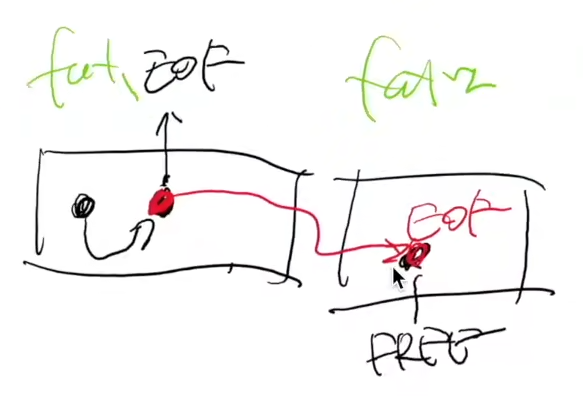 fat1 EOF
fat2
EOF
FREE